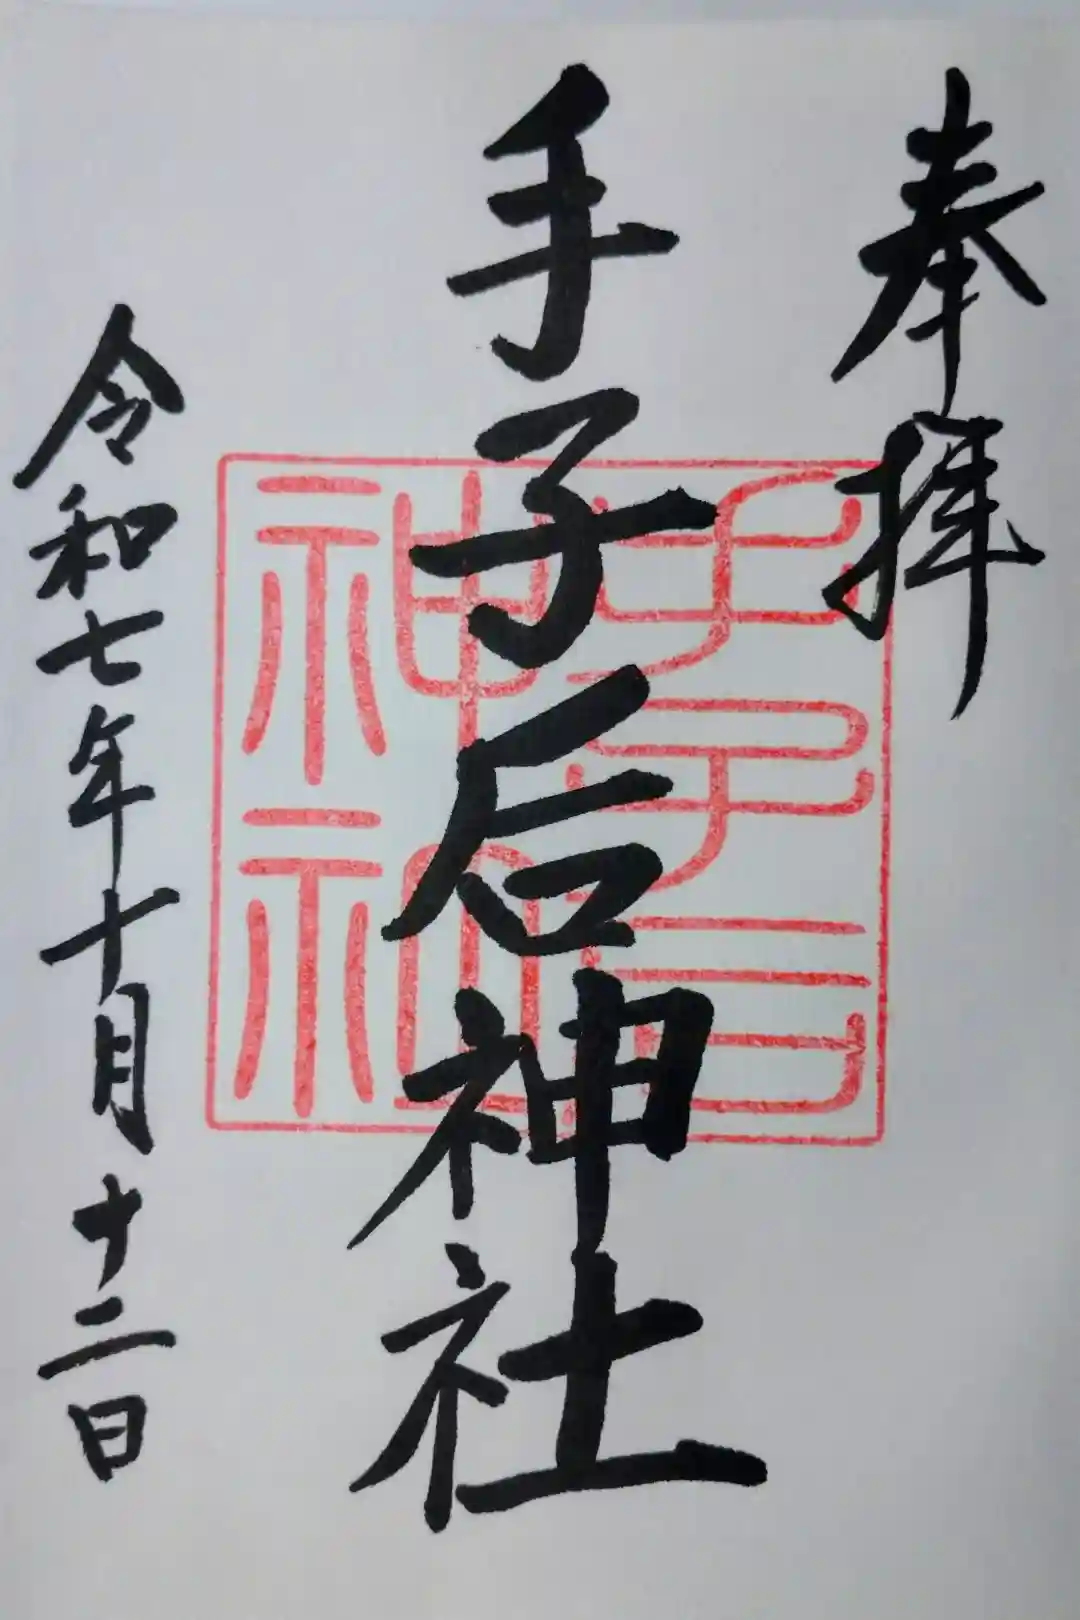 奉拝
手子后神社
手子后神社
令和七年十月十二日